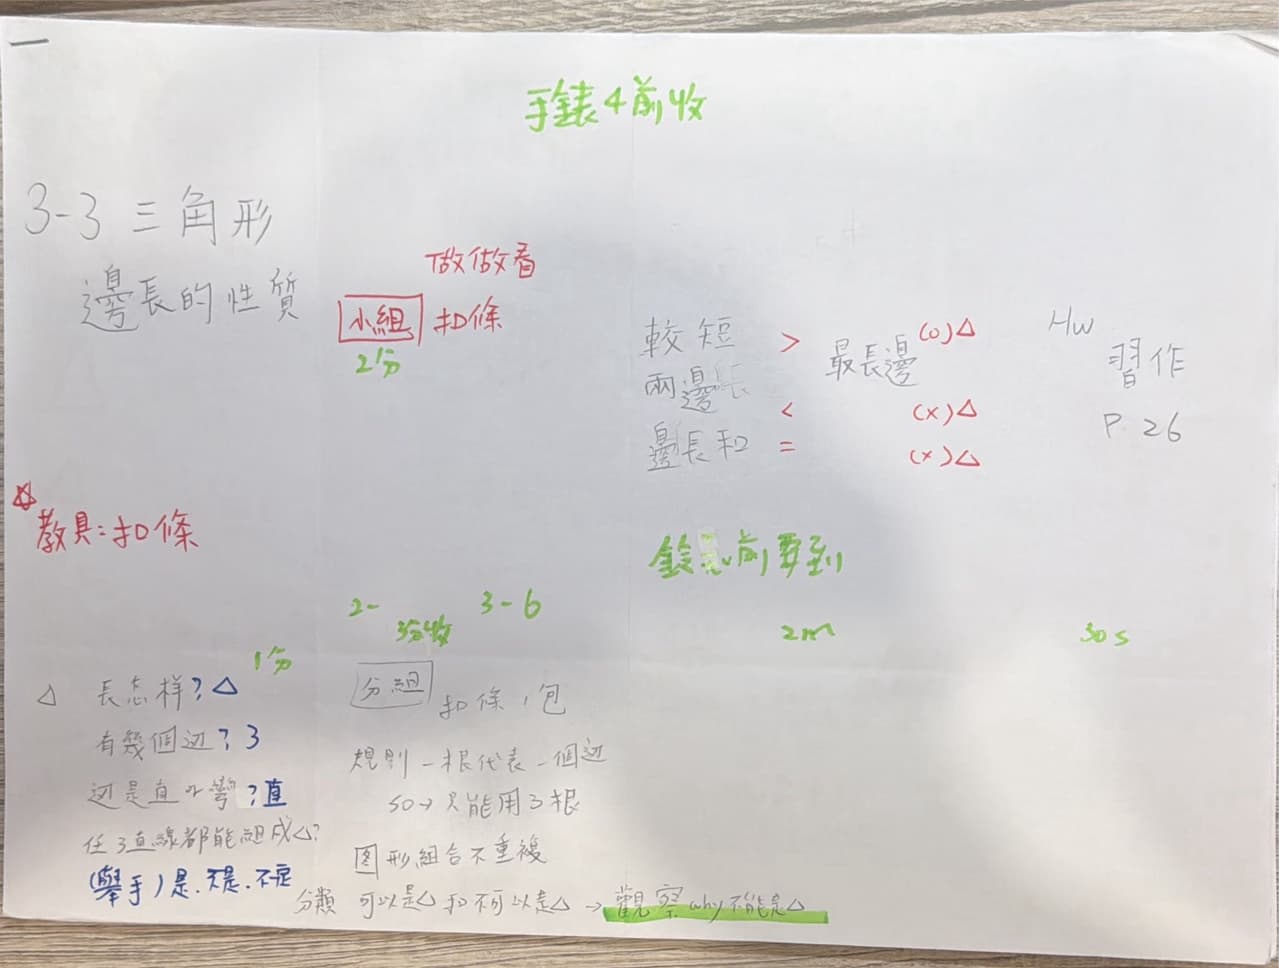 手錶4前收
3-3 三角形
邊長的性質
做做看
小組 扣條
2分
較短 > 最長邊 (o)△
兩邊長
< (x)△
邊長和 = (x)△
Hw
習作
P. 26
☆
教具:扣條
鈴響前要到
2-
3分收
3-6
2m
30s
1分
△ 長怎樣?△
有幾個边?3
边是直or彎?直
任3直線都能組成△?
(舉手)是.不是.不定
分組 扣條1包
規則 一根代表一個边
so→只能用3根
图形組合不重複
分類 可以是△和不可以是△→觀察why不能是△